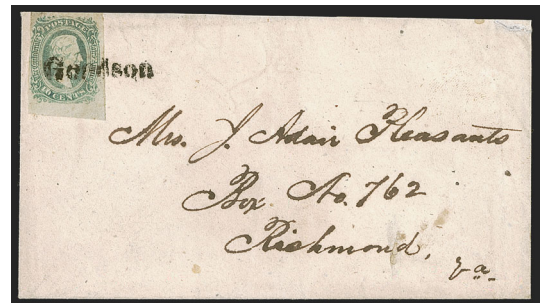 POSTAGE
Goodson
Mrs. J. Adair Pleasants
Box No. 762
Richmond,
Va.